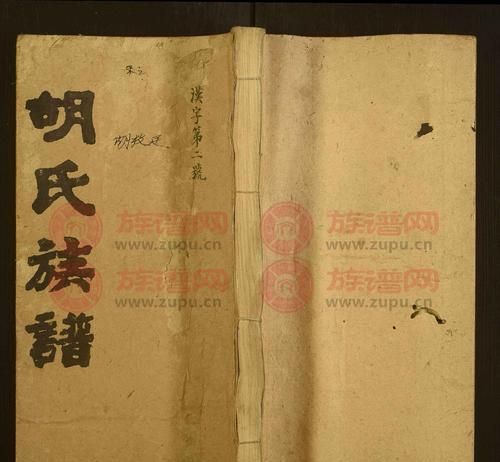 胡氏族譜
漢字第二號
族谱网
www.zupu.cn
族谱网
www.zupu.cn
族谱网
www.zupu.cn
族谱网
www.zupu.cn